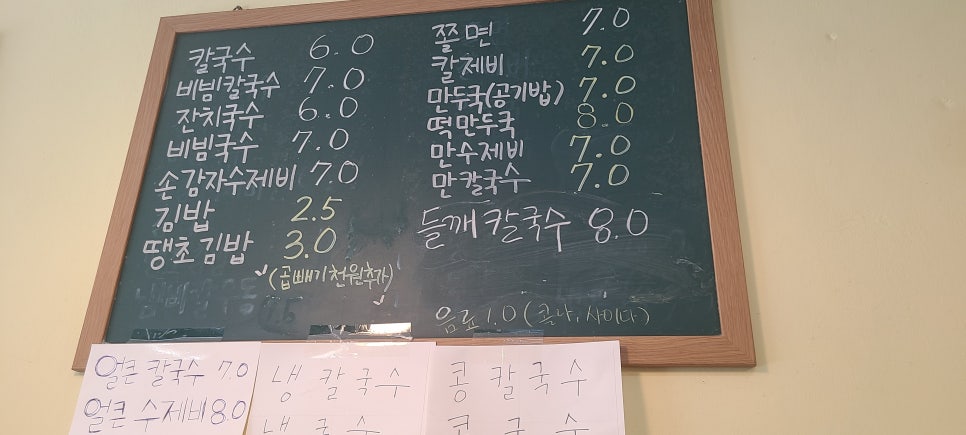 칼국수 6.0
비빔칼국수 7.0
잔치국수 6.0
비빔국수 7.0
손감자수제비 7.0
김밥 2.5
땡초김밥 3.0
(곱빼기천원추가)
쫄면 7.0
칼제비 7.0
만두국(공기밥) 7.0
떡만두국 8.0
만수제비 7.0
만칼국수 7.0
들깨칼국수 8.0
음료 1.0 (콜라, 사이다)
얼큰 칼국수 7.0
얼큰 수제비 8.0
냉칼국수
콩칼국수